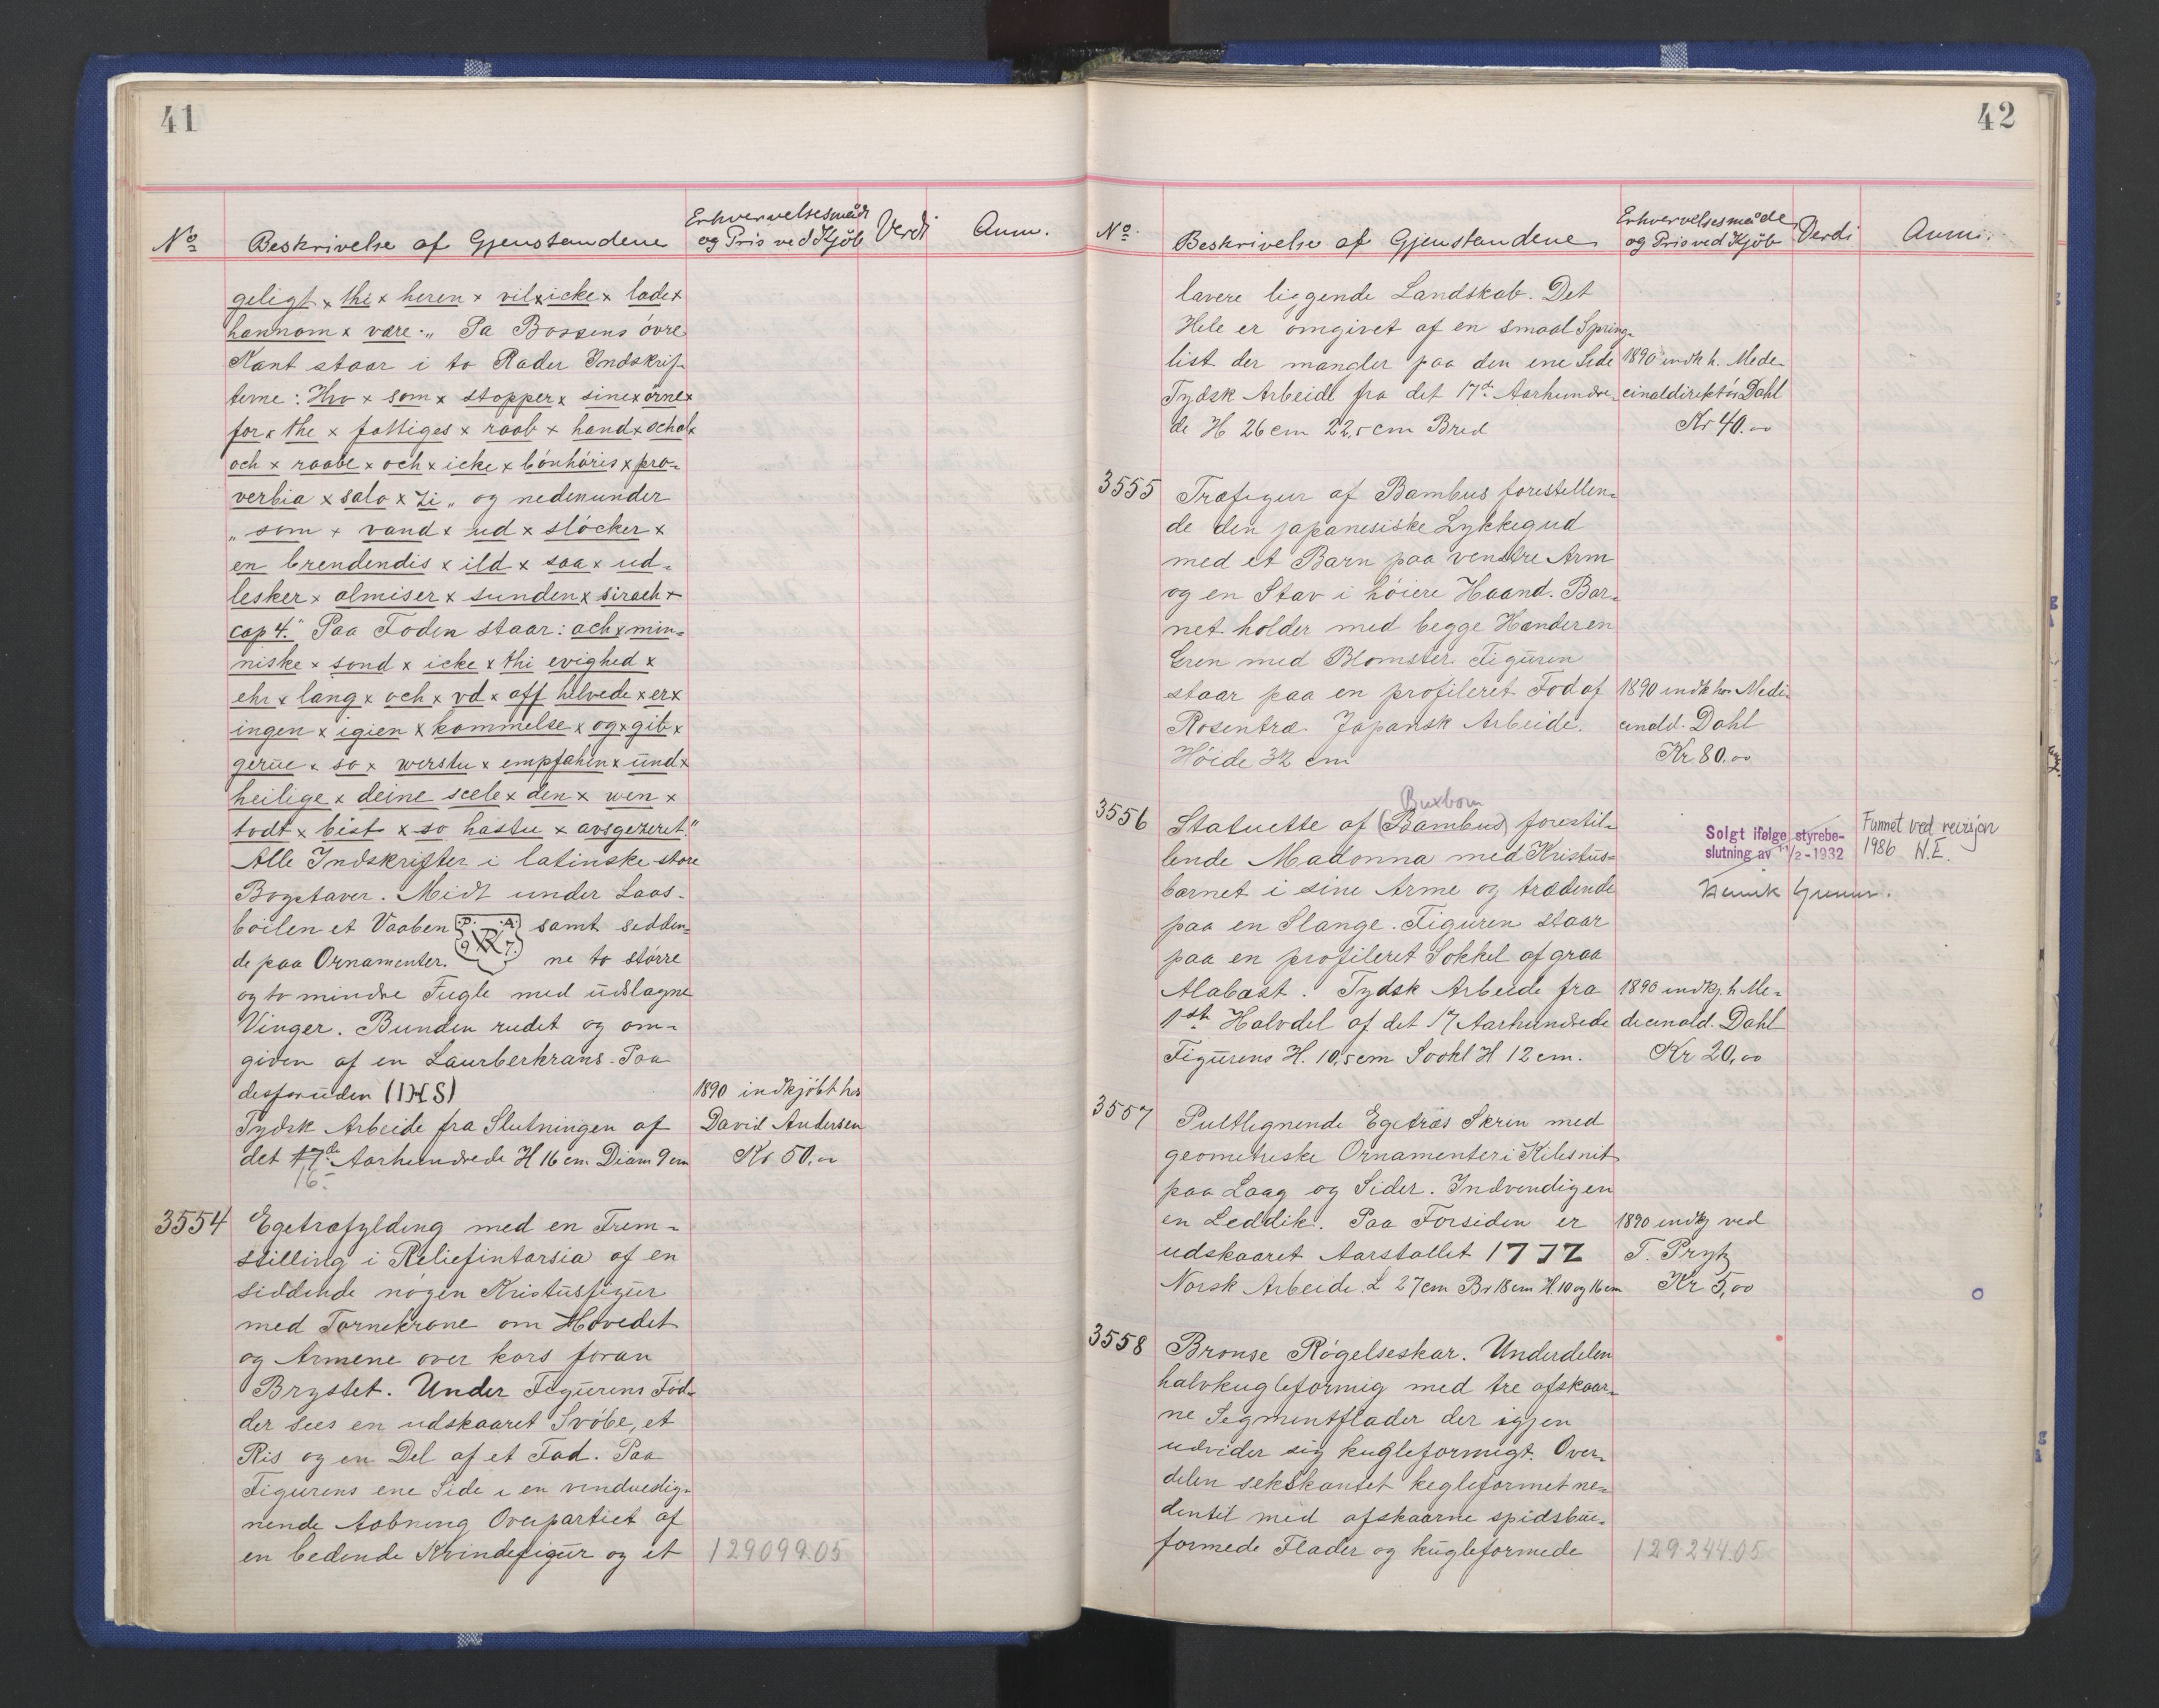 41
No Beskrivelse af Gjenstandene Erhvervelsesmåde og Pris ved Kjöb Verdi Anm.
geligt x thi x heren x vil x icke x lade x
hannom x være." Pa Bossens övre
Kant staar i to Rader Indskrif-
terne: Hvo x som x stopper x sine x örne x
for x the x fattiges x raab x hand x schal x
och x raabe x och x icke x bönhöris x pro-
verbia x salo x Zi " og nedenunder
" som x vand x ud x slöcker x
en brendendis x ild x saa x ud-
lesker x almiser x sunden x sirach x
cap 4." Paa Foden staar: ach x min-
niske x sond x icke x thi evighed x
ehr x lang x och x vd x aff helvede x er x
ingen x igien x kommelse x og x gib x
gerüe x so x wirstu x empfahen x und x
heilige x deine seele x den x wen x
todt x bist x so hastu x avsgezeret."
Alle Indskrifter i latinske store
Bogstaver. Midt under Laas-
böilen et Vaaben P. A. 9 R 7. samt sidden-
de paa Ornamenter. ne to större
og to mindre Fugle med udslagne
Vinger. Bunden rudet og om-
given af en Laurberkrans. Paa
desforuden (IHS) 1890 indkjöbt hos
Tydsk Arbeide fra Slutningen af David Andersen
det 17de Aarhundrede H 16 cm Diam 9 cm Kr 50,00
16.
3554 Egetræfylding med en Frem-
stilling i Reliefintarsia af en
siddende nögen Kristusfigur
med Tornekrone om Hovedet
og Armene over kors foran
Brystet. Under Figurens Föd-
der sees en udskaaret Svöbe, et
Ris og en Del af et Fad. Paa
Figurens ene Side i en vinduedlig-
nende Aabning Overpartiet af
en bedende Kvindefigur og et 129099.05
42
No. Beskrivelse af Gjenstandene Erhvervelsesmåde og Pris ved Kjöb Verdi Anm.
lavere liggende Landskab. Det
Hele er omgivet af en smal Spring-
list der mangler paa den ene Side 1890 indk h. Mede-
Tydsk Arbeide fra det 17d Aarhundre- cinaldirektör Dahl
de H 26 cm 22,5 cm Bred Kr 40.00
3555 Træfigur af Bambus forestellen-
de den japanesiske Lykkegud
med et Barn paa venstre Arm
og en Stav i höiere Haand. Bar-
net holder med begge Hænder en
Gren med Blomster. Figuren
staar paa en profileret Fod af 1890 indk hos Medi-
Rosentræ. Japansk Arbeide. cinald. Dahl
Höide 32 cm Kr 80.00
Buxbom
3556 Statuette af (Bambus) forestil-
lende Madonna med Kristus-
barnet i sine Arme og trædende
paa en Slange. Figuren staar
paa en profileret Sokkel af graa
Alabast. Tydsk Arbeide fra 1890 indkj. h Me-
1ste Halvdel af det 17 Aarhundrede dicinald. Dahl
Figurens H. 10,5 cm Sockl H 12 cm. Kr 20,00
Solgt ifølge styrebe-
slutning av 11/2-1932
Funnet ved revisjon
1986 N.E.
3557 Pultlignende Egetræs Skrin med
geometriske Ornamenter i Kilesnit
paa Laag og Sider. Indvendigen
en Leddik. Paa Forsiden er 1890 indkj ved
udskaaret Aarstallet 1772 T. Prytz
Norsk Arbeide. L 27cm Br 18cm H. 10 og 16 cm Kr 5,00
3558 Bronse Rögelseskar. Underdelen
halvkugleformig med tre afskaar-
ne Segmentflader der igjen
udvider sig kugleformigt. Over-
delen sekskantet kegleformet ne-
dentil med afskaarne spidsbue-
formede Flader og kugleformede 129244.05